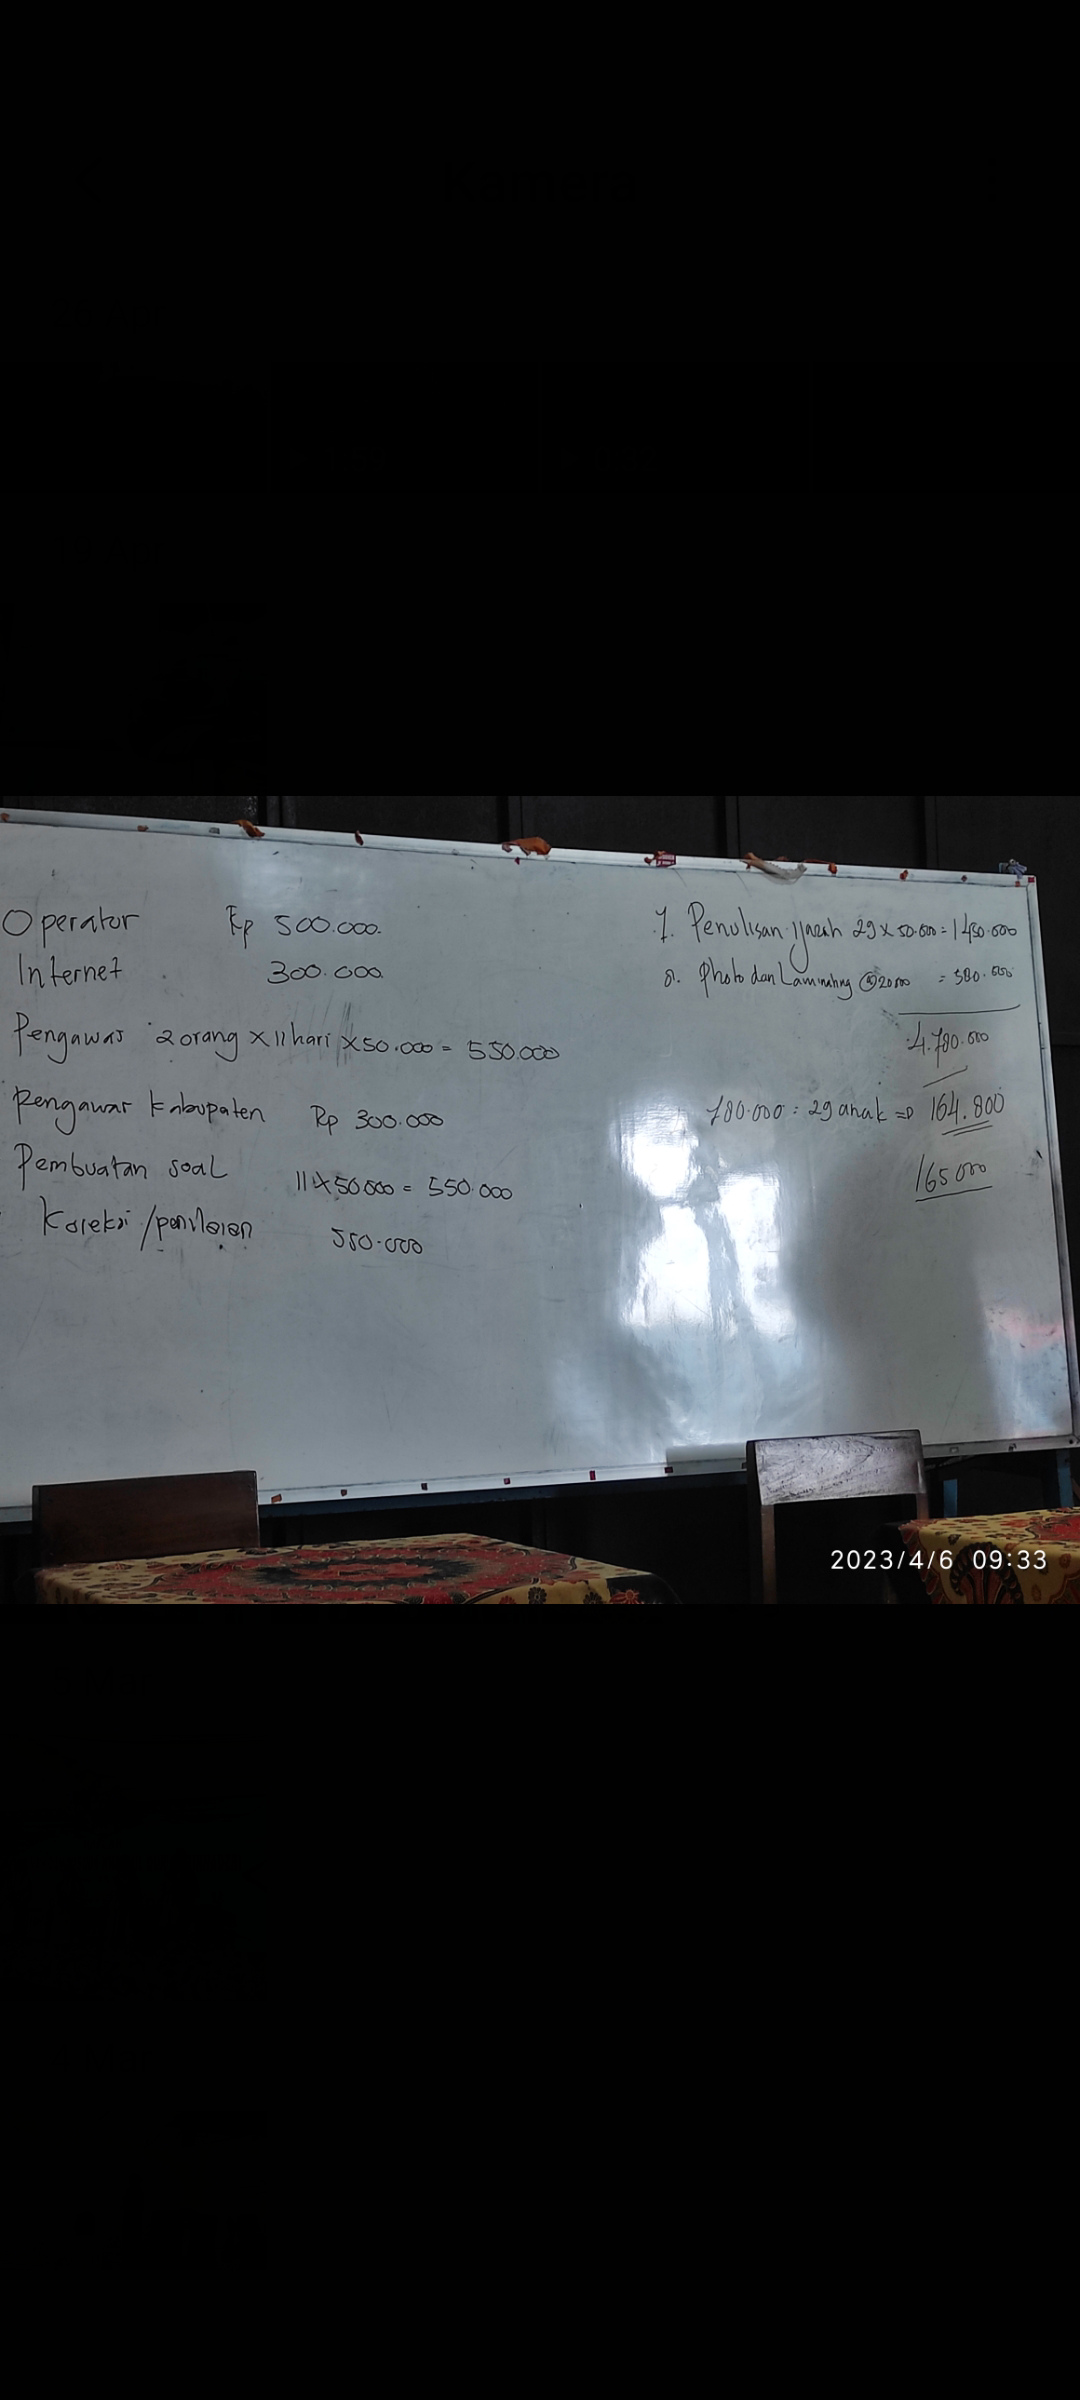 Operator Rp 500.000.
Internet 300.000
Pengawas 2 orang x 11 hari x 50.000 = 550.000
Pengawas Kabupaten Rp 300.000
Pembuatan soal 11 x 50.000 = 550.000
Koreksi / penilaian 550.000
7. Penulisan ijazah 29 x 50.000 = 1 450.000
8. Photo dan Laminating @ 20 000 = 580.000
4.780.000
780.000 : 29 anak => 164.800
165 000
2023/4/6 09:33